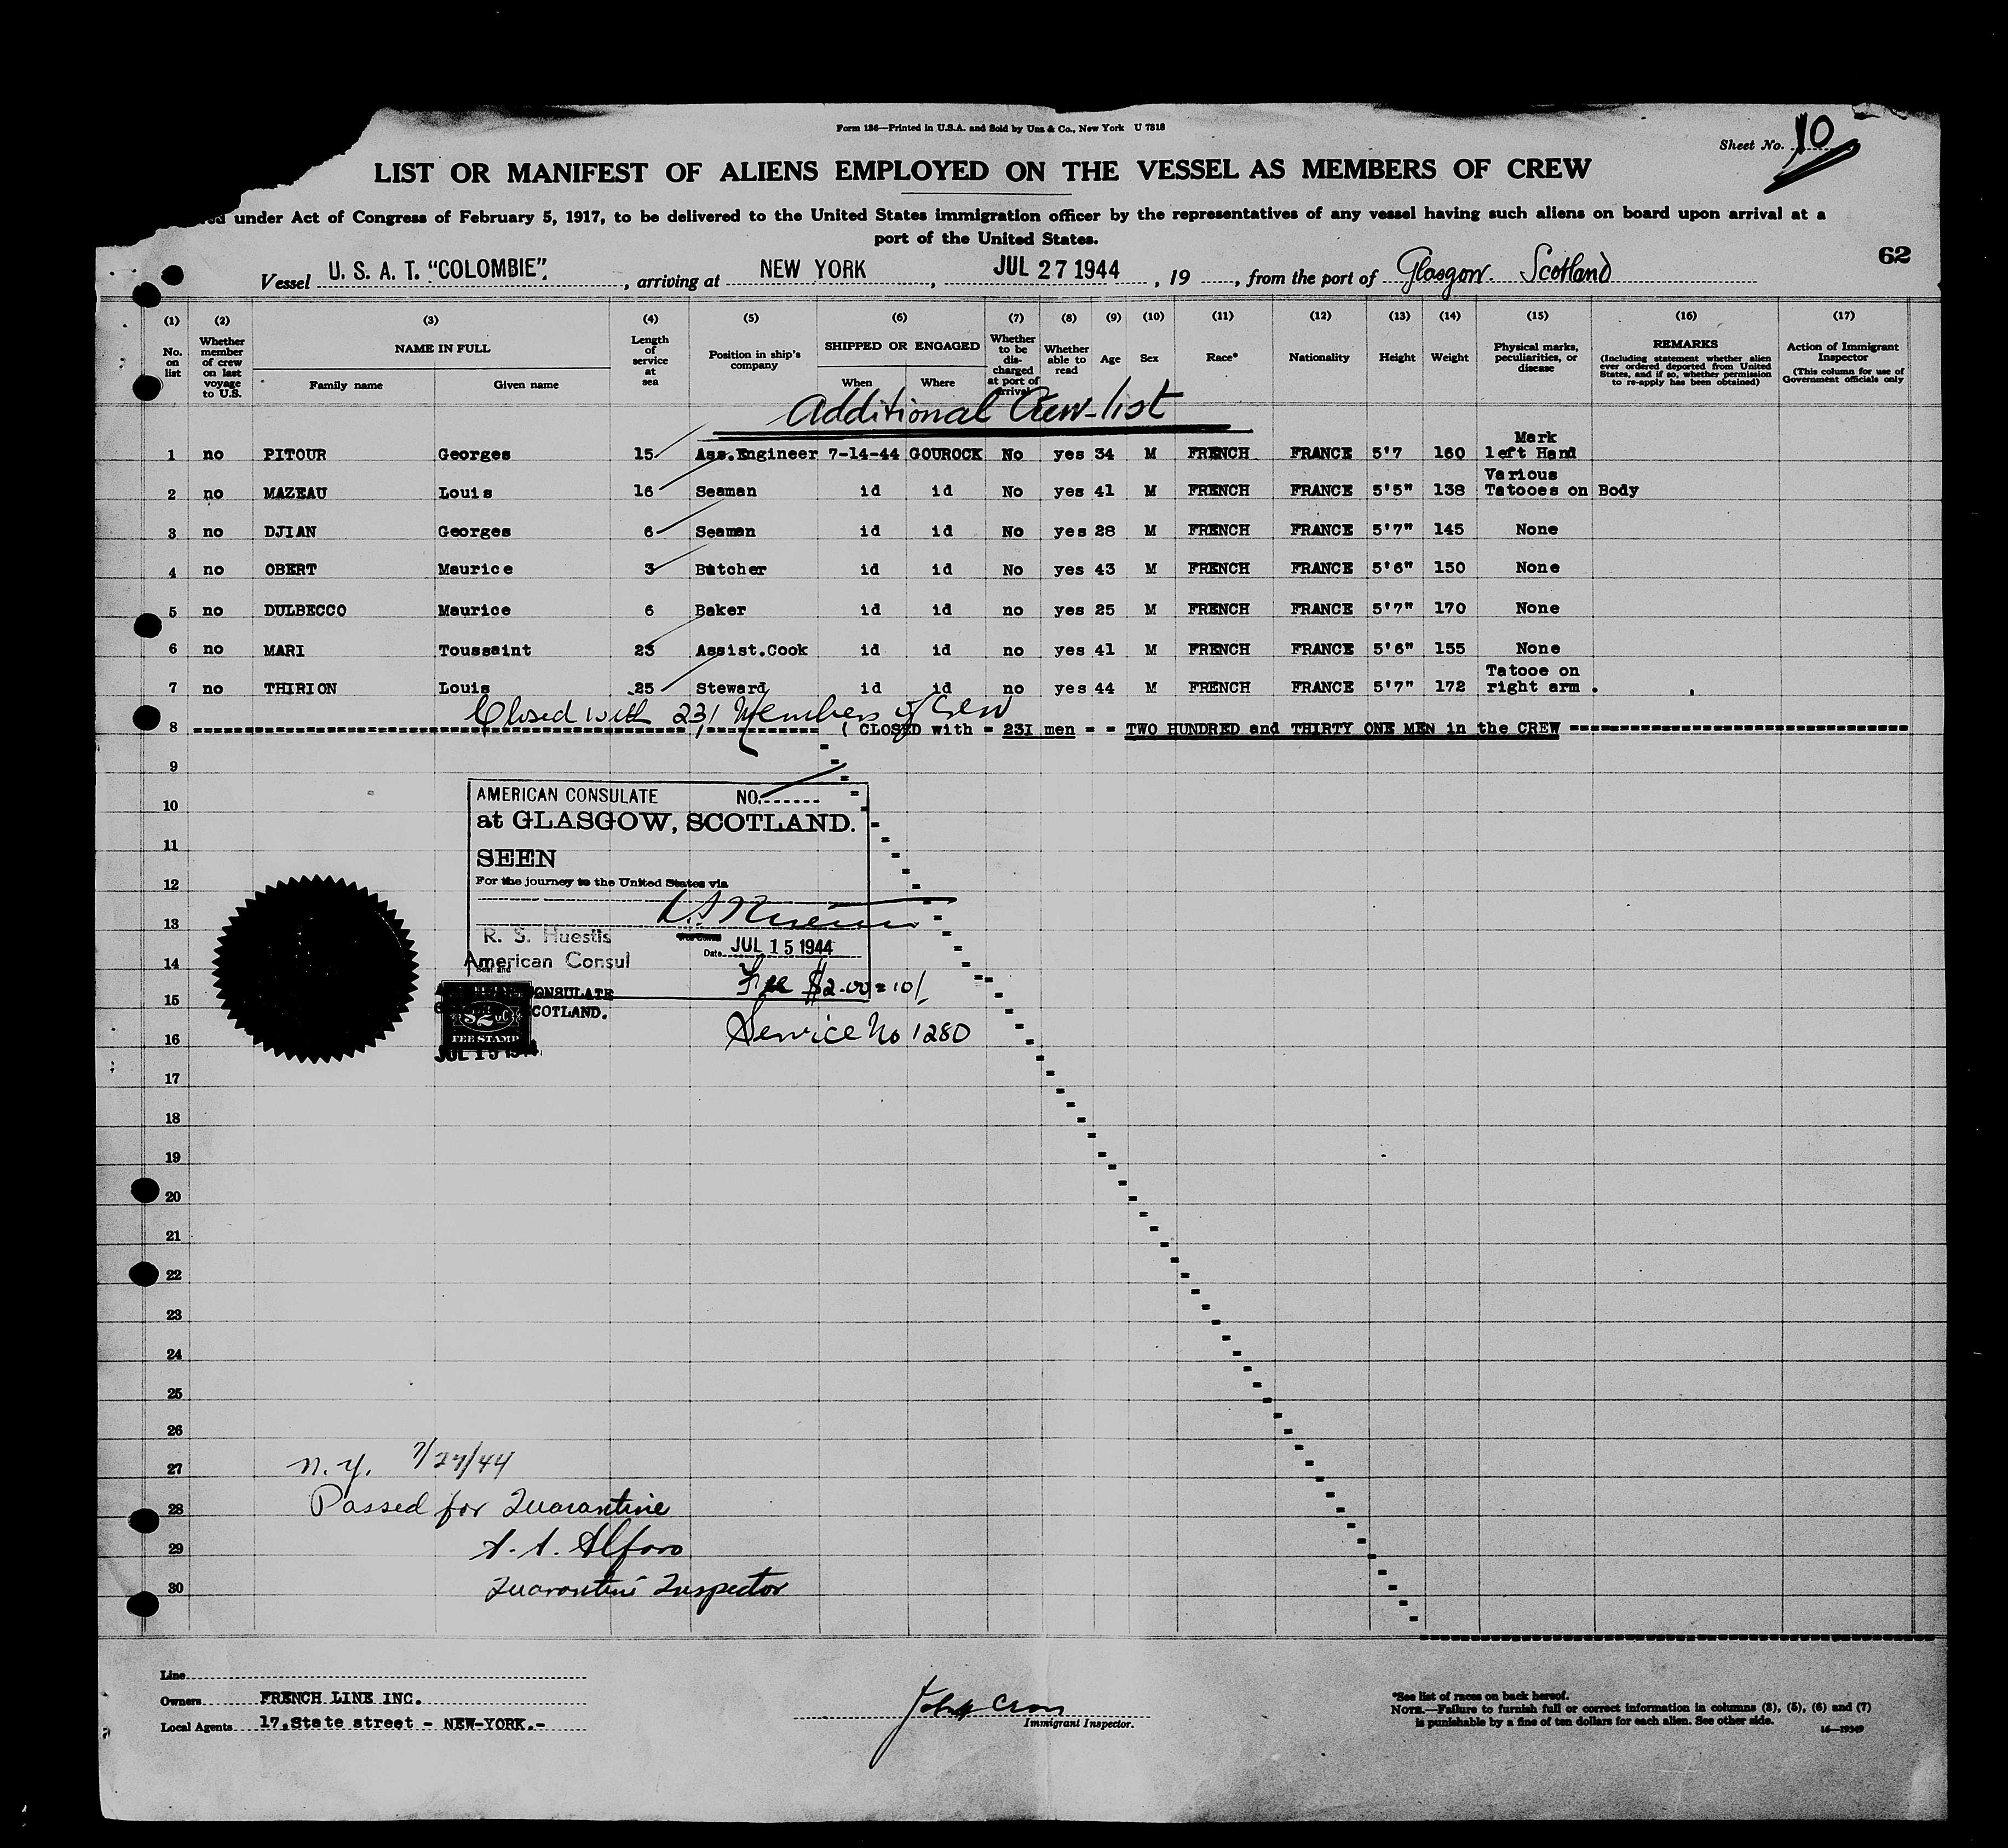 Form 136—Printed in U.S.A. and Sold by Unz & Co., New York U 7318
Sheet No. 10
LIST OR MANIFEST OF ALIENS EMPLOYED ON THE VESSEL AS MEMBERS OF CREW
under Act of Congress of February 5, 1917, to be delivered to the United States immigration officer by the representatives of any vessel having such aliens on board upon arrival at a
port of the United States.
62
Vessel U. S. A. T. "COLOMBIE", arriving at NEW YORK, JUL 27 1944, 19 , from the port of Glasgow. Scotland
(1) (2) (3) (4) (5) (6) (7) (8) (9) (10) (11) (12) (13) (14) (15) (16) (17)
No. on list
Whether member of crew on last voyage to U.S.
NAME IN FULL
Family name Given name
Length of service at sea
Position in ship's company
SHIPPED OR ENGAGED
When Where
Whether to be discharged at port of arrival
Whether able to read
Age
Sex
Race*
Nationality
Height
Weight
Physical marks, peculiarities, or disease
REMARKS
(Including statement whether alien ever ordered deported from United States, and if so, whether permission to re-apply has been obtained)
Action of Immigrant Inspector
(This column for use of Government officials only
Additional Crew-list
1 no PITOUR Georges 15 Ass.Engineer 7-14-44 GOUROCK No yes 34 M FRENCH FRANCE 5'7 160 Mark left Hand
2 no MAZEAU Louis 16 Seaman id id No yes 41 M FRENCH FRANCE 5'5" 138 Various Tatooes on Body
3 no DJIAN Georges 6 Seaman id id No yes 28 M FRENCH FRANCE 5'7" 145 None
4 no OBERT Maurice 3 Butcher id id No yes 43 M FRENCH FRANCE 5'6" 150 None
5 no DULBECCO Maurice 6 Baker id id no yes 25 M FRENCH FRANCE 5'7" 170 None
6 no MARI Toussaint 23 Assist.Cook id id no yes 41 M FRENCH FRANCE 5'6" 155 None
7 no THIRION Louis 25 Steward id id no yes 44 M FRENCH FRANCE 5'7" 172 Tatooe on right arm .
Closed with 231 Members of Crew
8 ( CLOSED with = 231 men = = TWO HUNDRED and THIRTY ONE MEN in the CREW
9
10
11
12
13
14
15
16
17
18
19
20
21
22
23
24
25
26
27
28
29
30
AMERICAN CONSULATE NO.
at GLASGOW, SCOTLAND.
SEEN
For the journey to the United States via
R. S. Huestis
American Consul
Seal and
Date JUL 15 1944
Fee $2.00 = 10/
Service No 1280
CONSULATE
SCOTLAND.
$2.00
FEE STAMP
JUL 15 1944
N.Y. 7/27/44
Passed for Quarantine
A. A. Alfaro
Quarantine Inspector
Line
Owners FRENCH LINE INC.
Local Agents 17.State street - NEW-YORK.-
Immigrant Inspector.
*See list of races on back hereof.
NOTE.—Failure to furnish full or correct information in columns (3), (5), (6) and (7)
is punishable by a fine of ten dollars for each alien. See other side.
16—19349